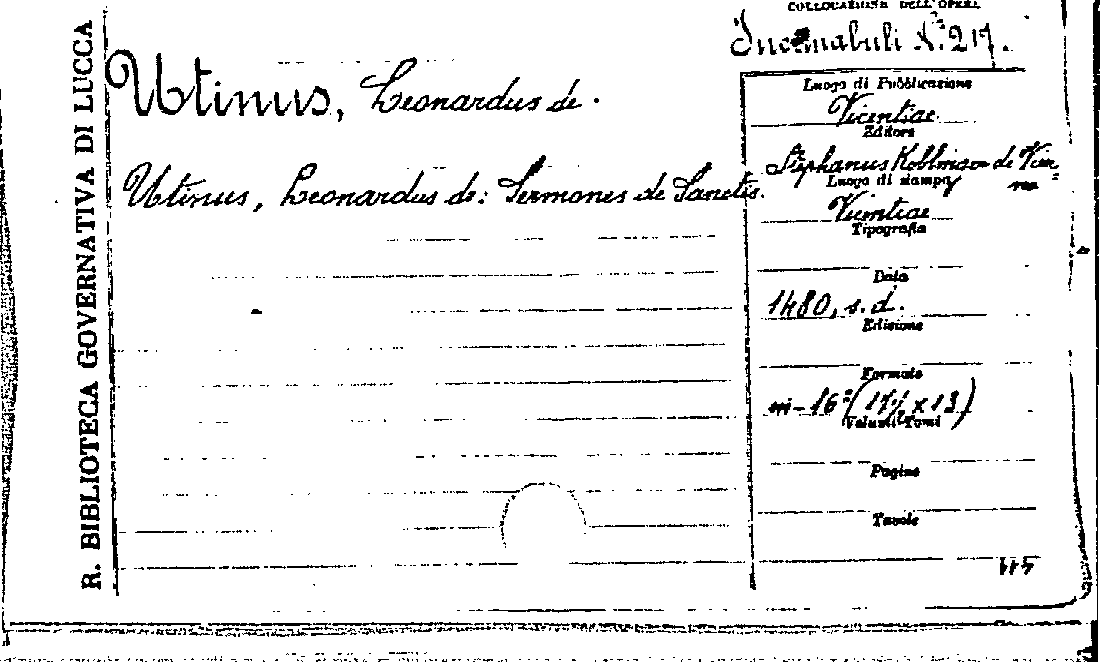 R. BIBLIOTECA GOVERNATIVA DI LUCCA
COLLOCAZIONE DELL'OPERA
Incunabuli N.º 217.
Utinus, Leonardus de.
Utinus, Leonardus de: Sermones de Sanctis.
Luogo di Pubblicazione
Vicentiae
Editore
Stephanus Koblinger de Vien
na
Luogo di stampa
Vicentiae
Tipografia
Data
1480, s. d.
Edizione
Formato
in-16º (17½ x 13)
Volumi-Tomi
Pagine
Tavole